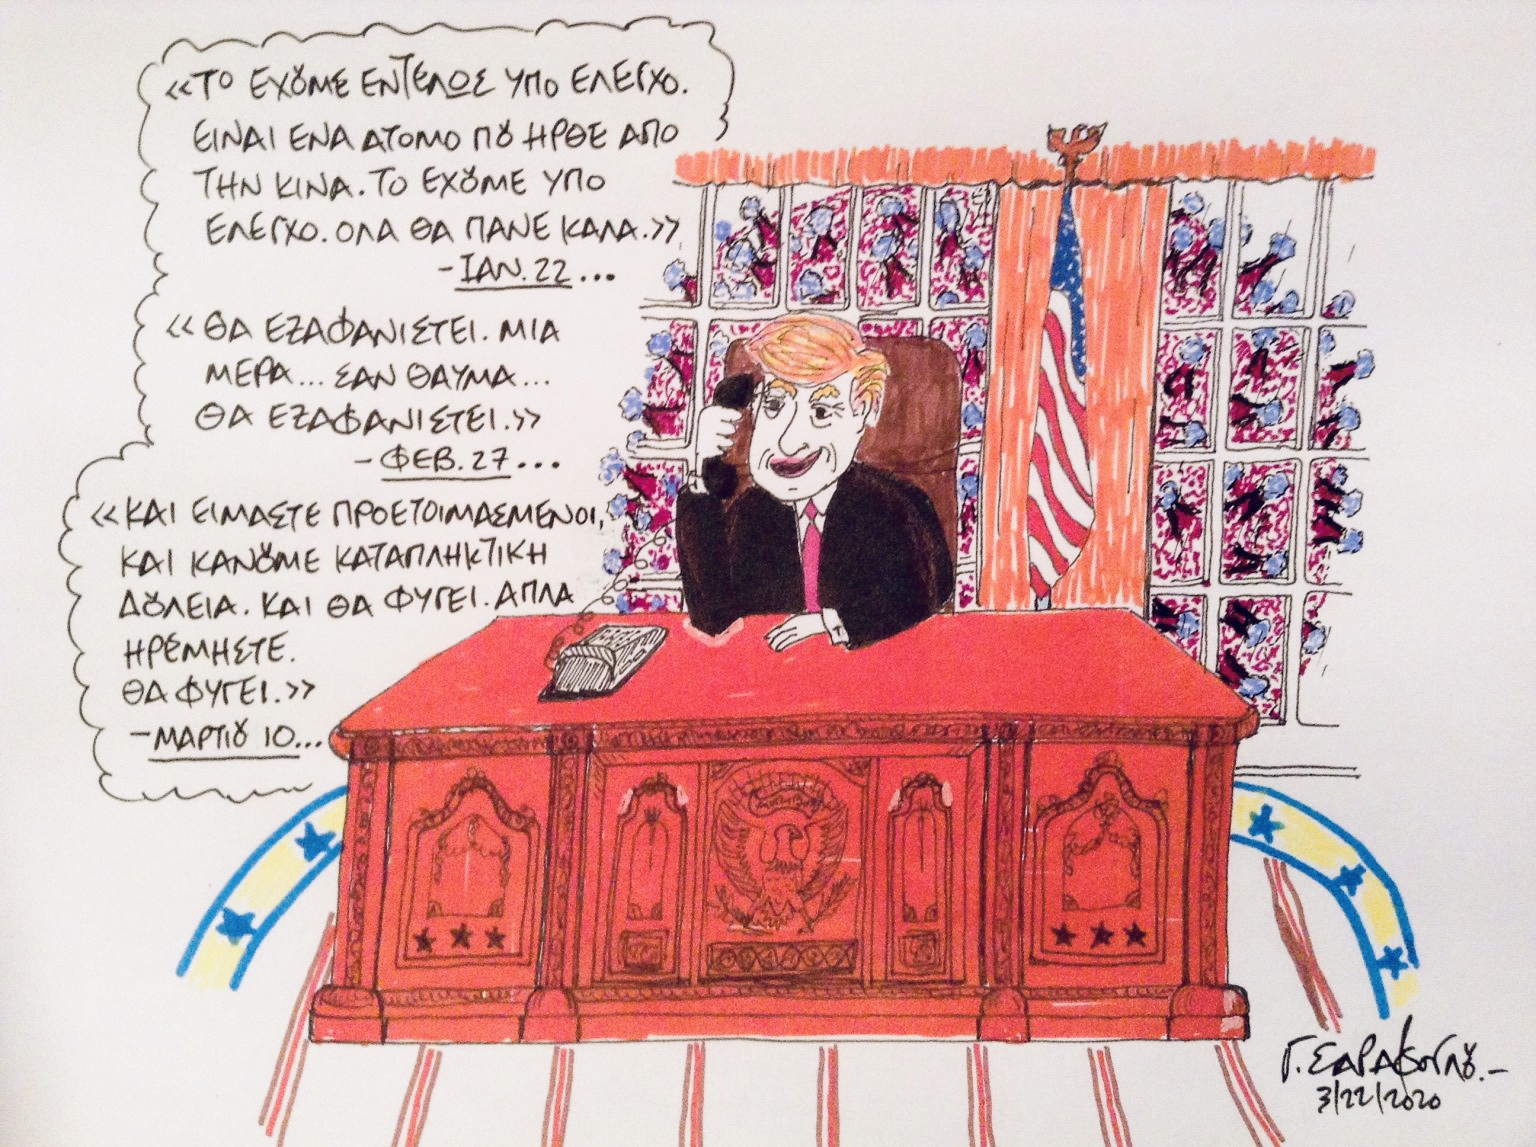 «ΤΟ ΕΧȣΜΕ ΕΝΤΕΛΩΣ ΥΠΟ ΕΛΕΓΧΟ.
ΕΙΝΑΙ ΕΝΑ ΑΤΟΜΟ Πȣ ΗΡΘΕ ΑΠΟ
ΤΗΝ ΚΙΝΑ. ΤΟ ΕΧȣΜΕ ΥΠΟ
ΕΛΕΓΧΟ. ΟΛΑ ΘΑ ΠΑΝΕ ΚΑΛΑ.»
-ΙΑΝ. 22...
«ΘΑ ΕΞΑΦΑΝΙΣΤΕΙ. ΜΙΑ
ΜΕΡΑ... ΣΑΝ ΘΑΥΜΑ...
ΘΑ ΕΞΑΦΑΝΙΣΤΕΙ.»
-ΦΕΒ. 27...
«ΚΑΙ ΕΙΜΑΣΤΕ ΠΡΟΕΤΟΙΜΑΣΜΕΝΟΙ,
ΚΑΙ ΚΑΝȣΜΕ ΚΑΤΑΠΛΗΚΤΙΚΗ
ΔȣΛΕΙΑ. ΚΑΙ ΘΑ ΦΥΓΕΙ. ΑΠΛΑ
ΗΡΕΜΗΣΤΕ.
ΘΑ ΦΥΓΕΙ.»
-ΜΑΡΤΙȣ 10...
Γ. ΣΑΡΑΦΟΓΛȣ.-
3/22/2020